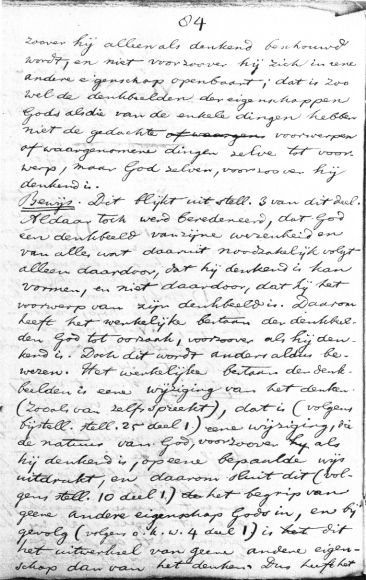 84
zoover hij alleen als denkend beschouwd
wordt, en niet voorzoover hij zich in eene
andere eigenschap openbaart; dat is zoo
wel de denkbeelden der eigenschappen
Gods als die van de enkele dingen hebben
niet de gedachte of waargen voorwerpen
of waargenomene dingen zelve tot voor-
werp, maar God zelven, voorzoover hij
denkend is.
Bewijs. Dit blijkt uit stell. 3 van dit deel.
Aldaar toch werd beredeneerd, dat God
een denkbeeld van zijne wezenheid en
van alles wat daaruit noodzakelijk volgt
alleen daardoor, dat hij denkend is kan
vormen, en niet daardoor, dat hij het
voorwerp van zijn denkbeeld is. Daarom
heeft het werkelijke bestaan der denkbeel-
den God tot oorzaak, voorzoover als hij den-
kend is. Doch dit wordt anders aldus be-
wezen. Het werkelijke bestaan der denk-
beelden is eene wijziging van het denken
(zooals van zelf spreekt), dat is (volgens
bijstell. stell. 25 deel 1) eene wijziging, die
de natuur van God, voorzoover hij als
hij denkend is, op eene bepaalde wijs
uitdrukt, en daarom sluit dit (vol-
gens stell. 10 deel 1) het begrip van
geene andere eigenschap Gods in, en bij
gevolg (volgens o. k. w. 4 deel 1) is het dit
het uitwerksel van geene andere eigen-
schap dan van het denken. Dus heeft het